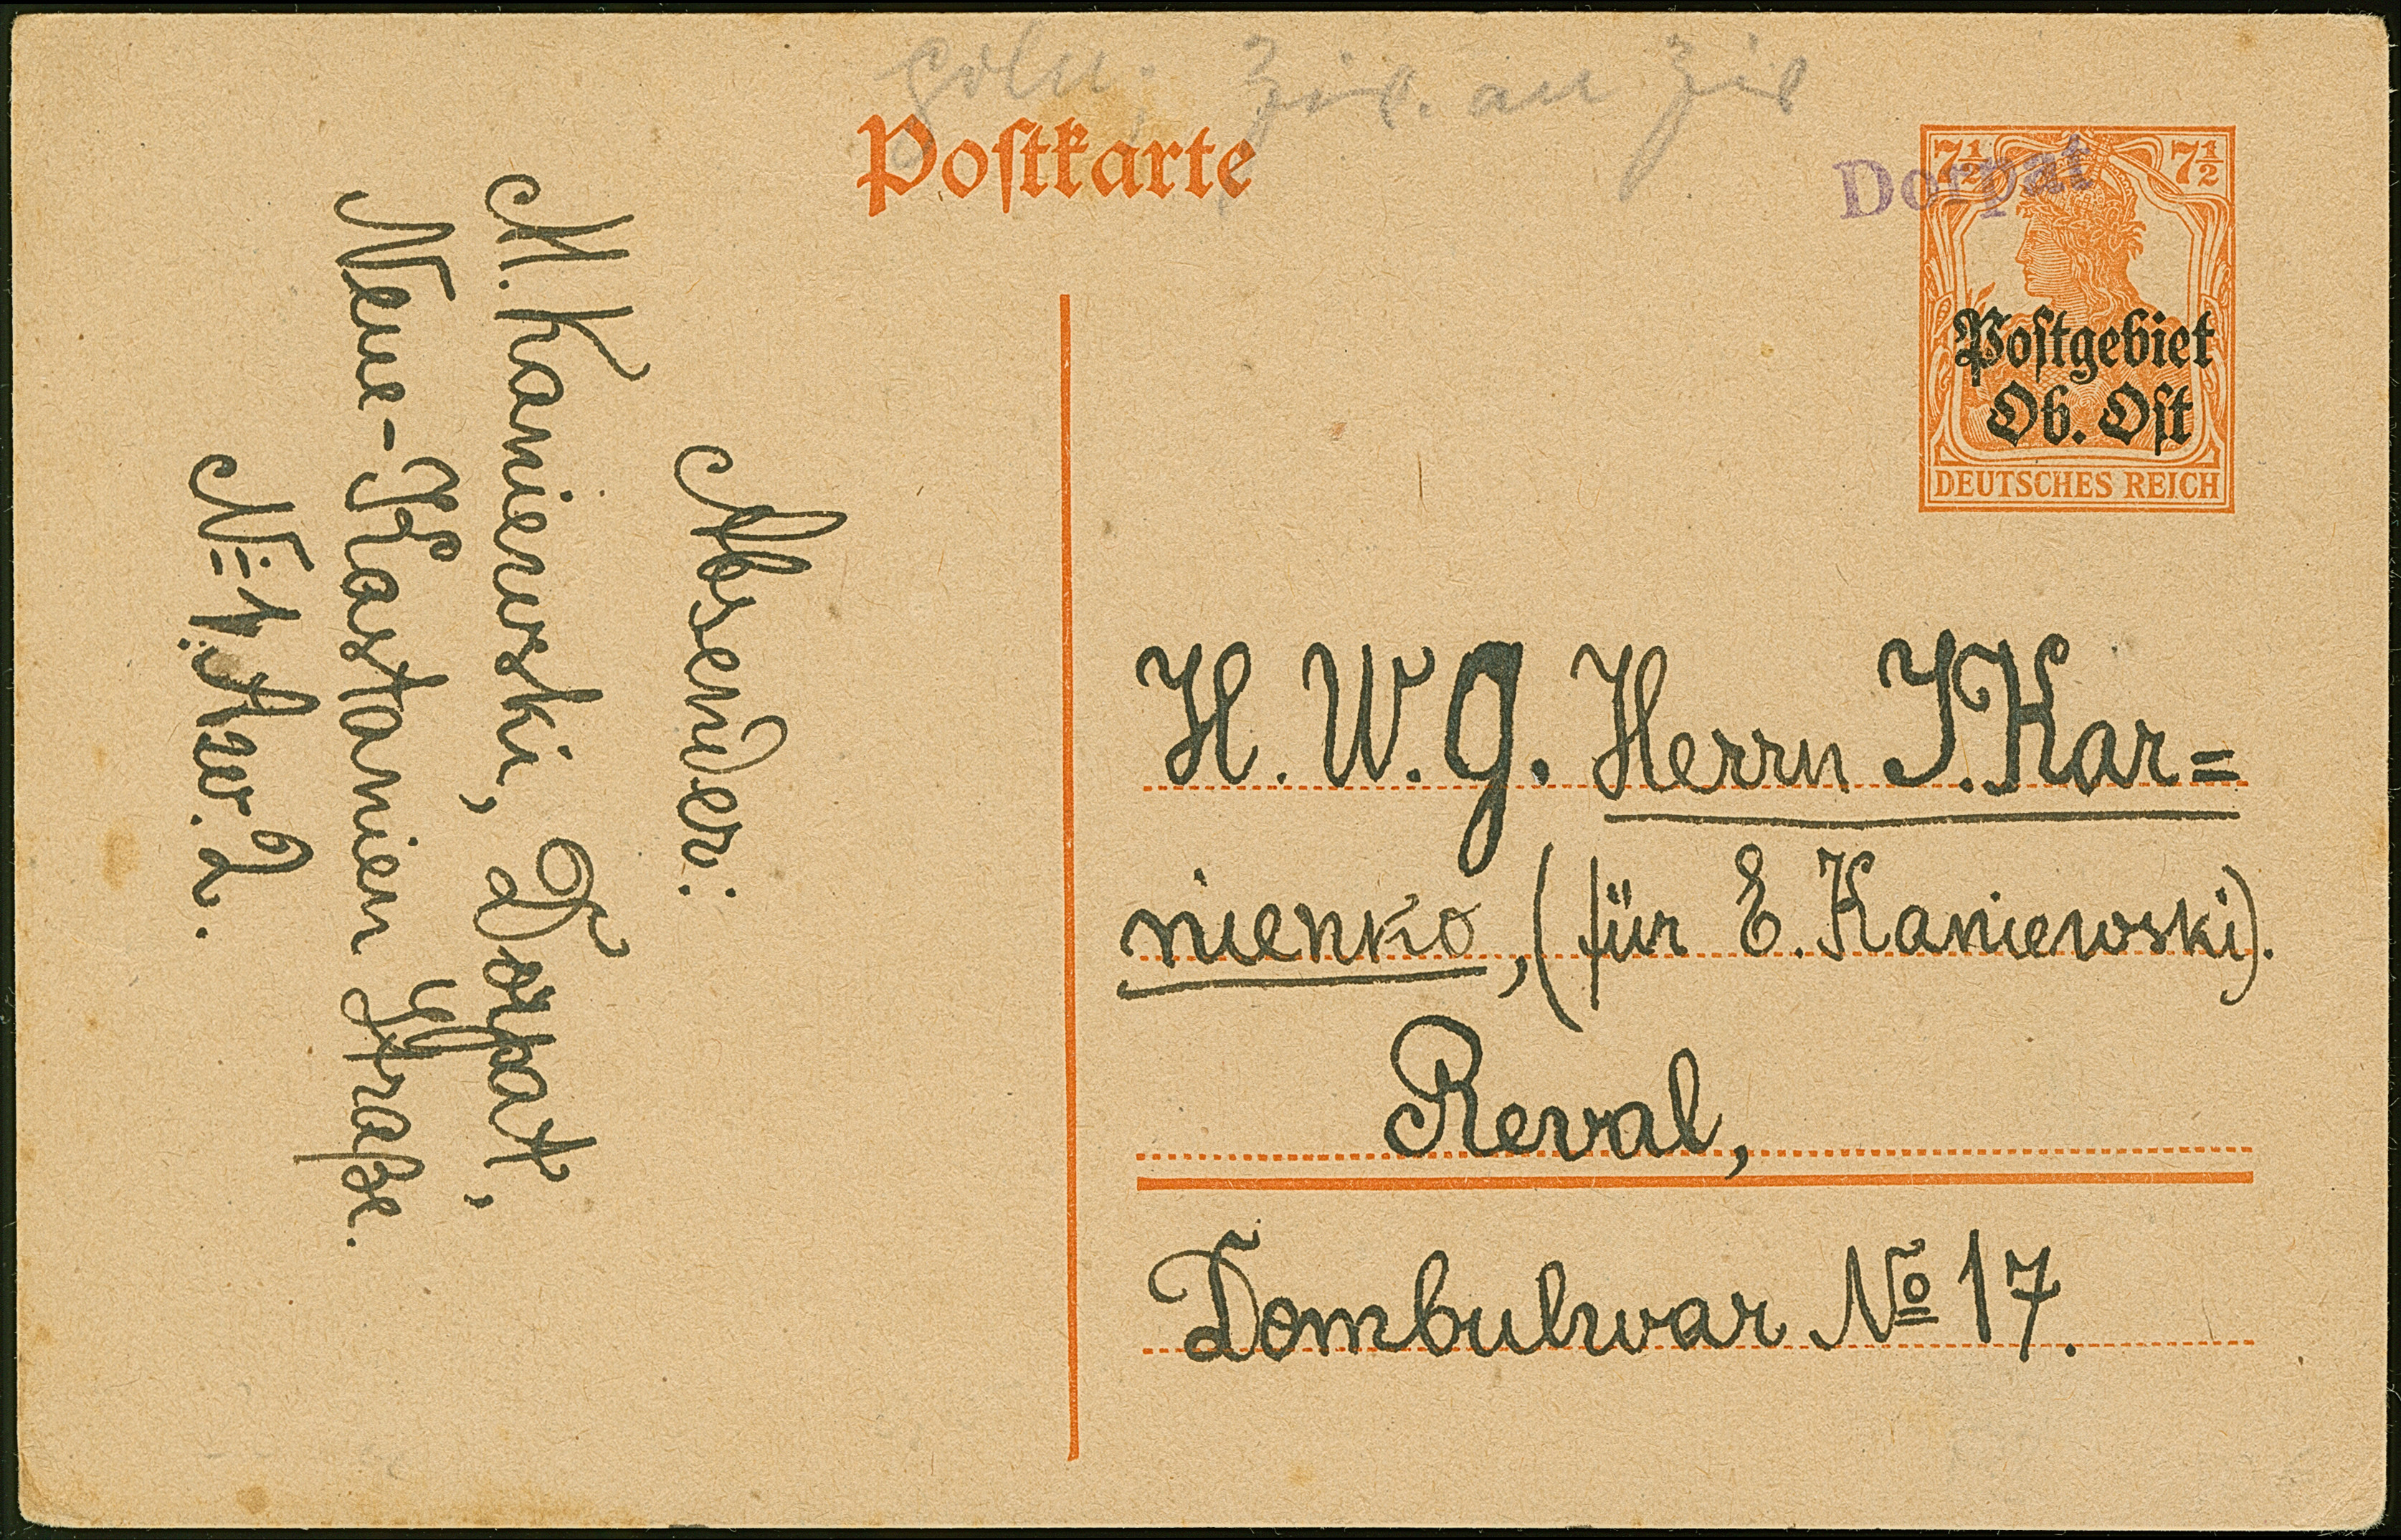 Postkarte
Dorpat
7½ 7½
Postgebiet
Ob. Ost
DEUTSCHES REICH
Absender:
M. Kaniewski, Dorpat,
Neue-Kastanien Straße.
No 1. Kw. 2.
H. W. G. Herrn J. Kar=
nienko, (für E. Kaniewski).
Reval,
Dombulwar No 17.